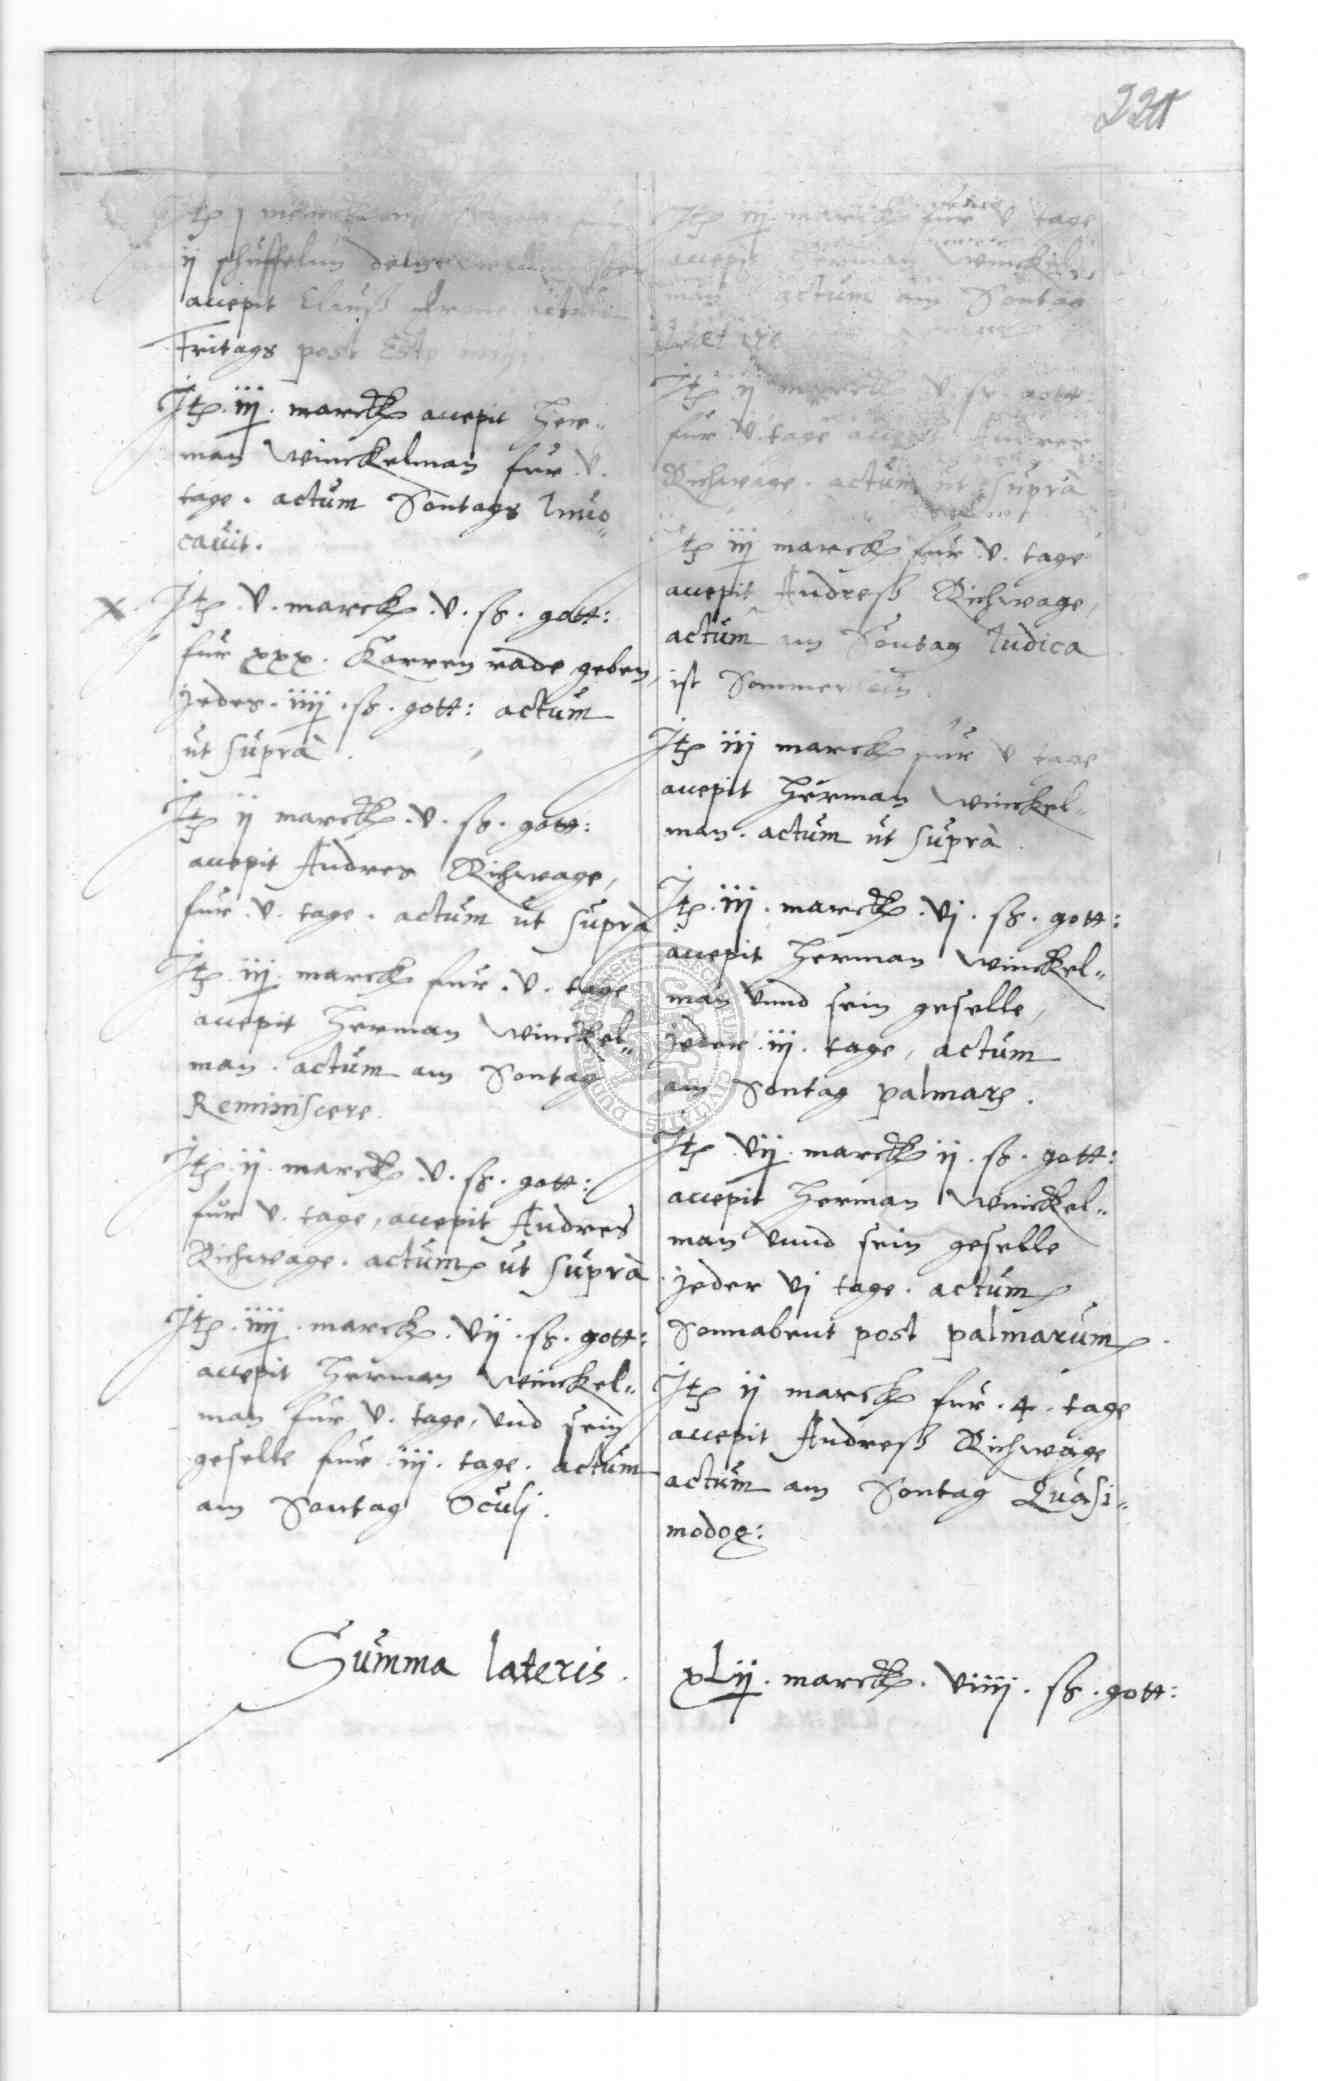 Jtem j
ij schuffelun
accepit Clauß
Fritags post Esto mihi.
Jtem . iij . marck accepit Her„
man Winckelman fur . V .
tage . actum Sontags Inuo„
cauit .
x Jtem . V . marck . V . ß . gott:
fur xxx . Karren rade geben,
jedes . iiij . ß . gott: actum
ut supra .
Jtem ij marck . V . ß . gott:
accepit Andres Richwage,
fur . V . tage . actum ut supra
Jtem . iij . marck fur . V . tage
accepit Herman Winckel„
man . actum am Sontag
Reminiscere .
Jtem . ij . marck . V . ß . gott:
fur V . tage, accepit Andres
Richwage . actum ut supra
Jtem . iiij . marck . Vij . ß . gott:
accepit Herman Winckel„
man fur V . tage, Vnd sein
geselle fur . iij . tage . actum
am Sontag Oculj .
Jtem iij . marck fur V tage
accepit Herman Winckel„
man actum am Sontag
Jtem ij marck . V . ß . gott:
fur . V . tage accepit Andres
Richwage . actum ut supra
Jtem iij marck fur . V . tage
accepit Andreß Richwage,
actum am Sontag Iudica
ist Sommer
Jtem iij marck fur V tage
accepit Herman Winckel„
man . actum ut supra .
Jtem . iij . marck . Vj . ß . gott:
accepit Herman Winckel„
man Vnnd sein geselle,
jeder . iij . tage, actum
am Sontag palmarum .
Jtem . Vij . marck ij . ß . gott:
accepit Herman Winckel„
man Vnnd sein geselle
jeder Vj tage . actum
Sonnabent post palmarum .
Jtem ij marck fur . 4 . tage
accepit Andreß Richwage
actum am Sontag Quasi„
modog:
Summa lateris .
xLij . marck . Viiij . ß . gott: